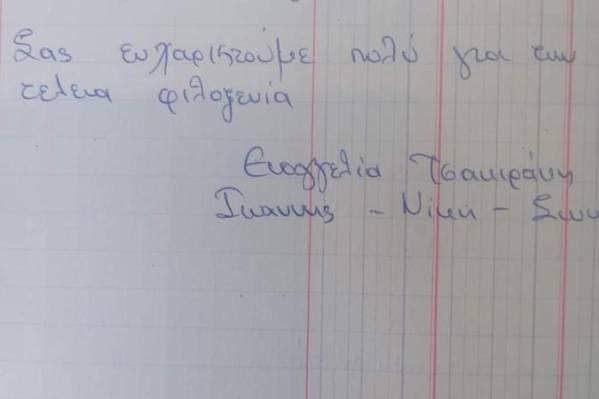 Σας ευχαριστούμε πολύ για την
τελεια φιλοξενία
Ευαγγελία Τσακιράκη
Ιωάννης - Νίκη -